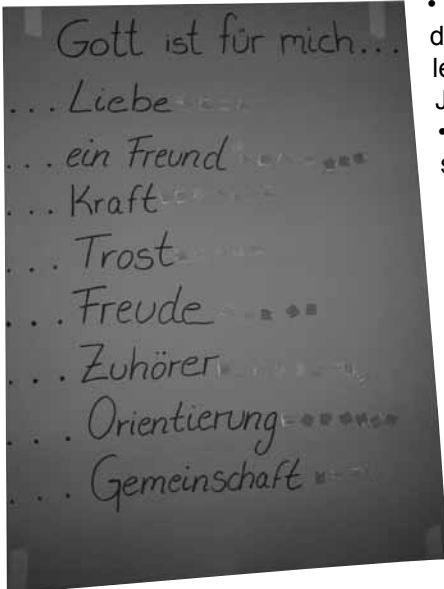 Gott ist für mich...
... Liebe
... ein Freund
... Kraft
... Trost
... Freude
... Zuhörer
... Orientierung
... Gemeinschaft